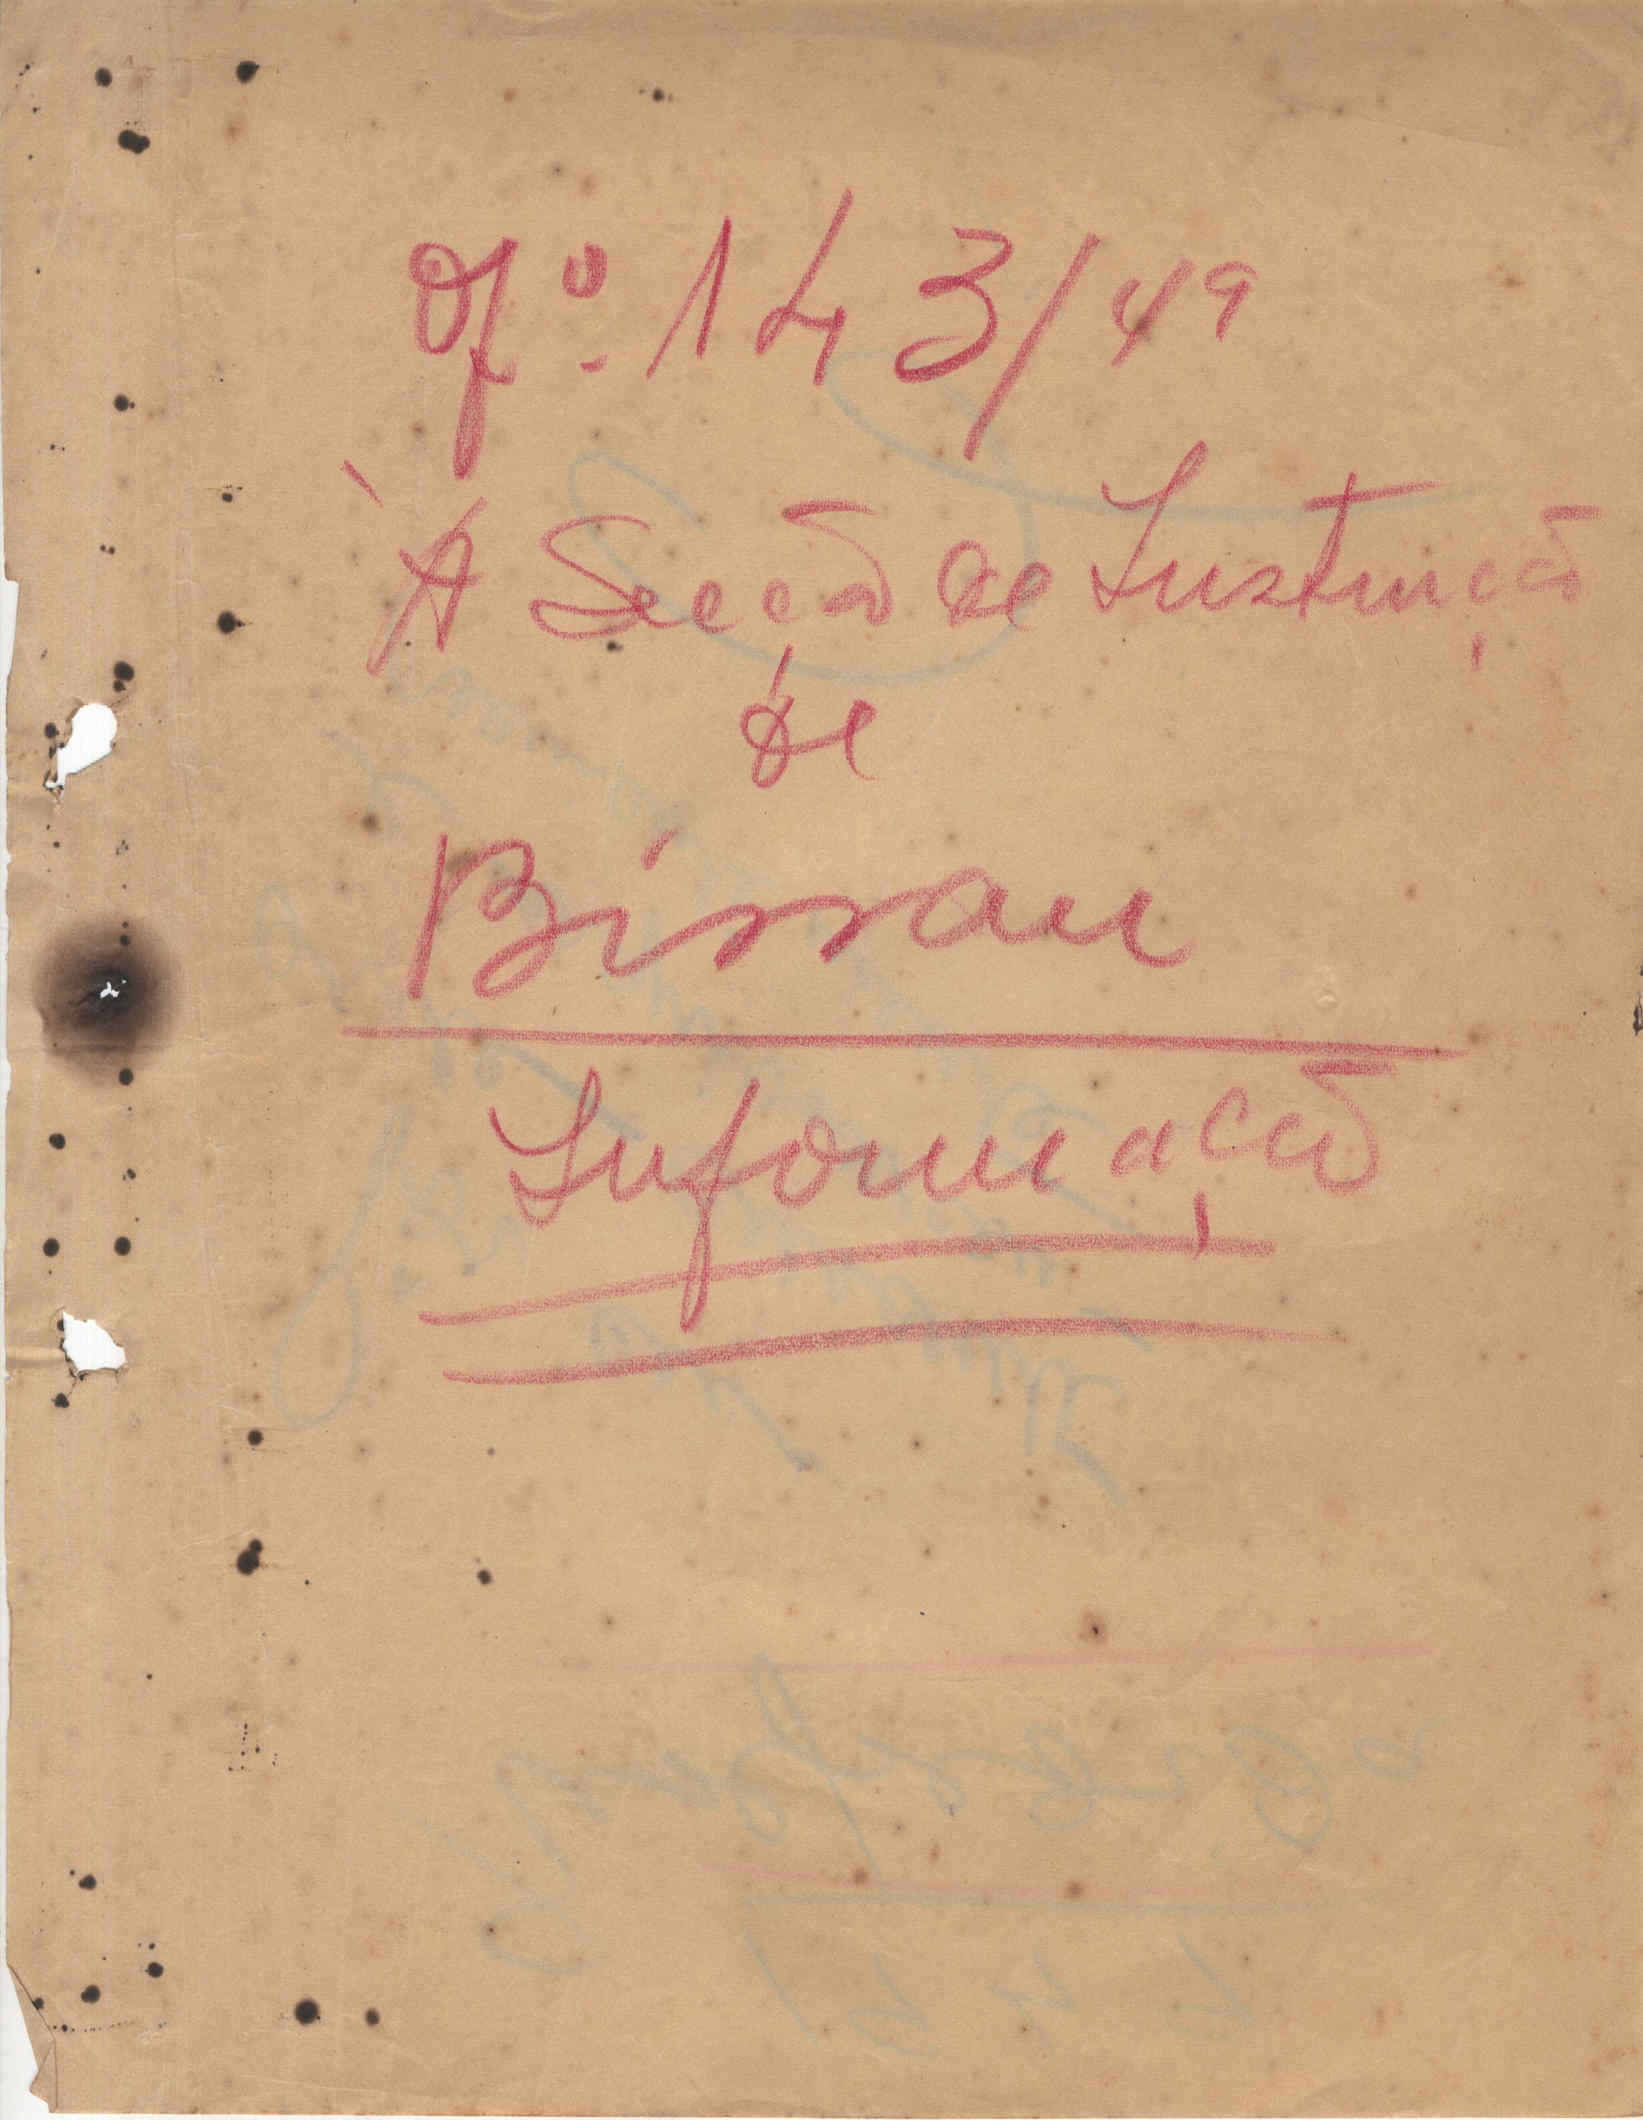 Of.º 143/49
À Secção de Instrução
de
Bissau
Informação